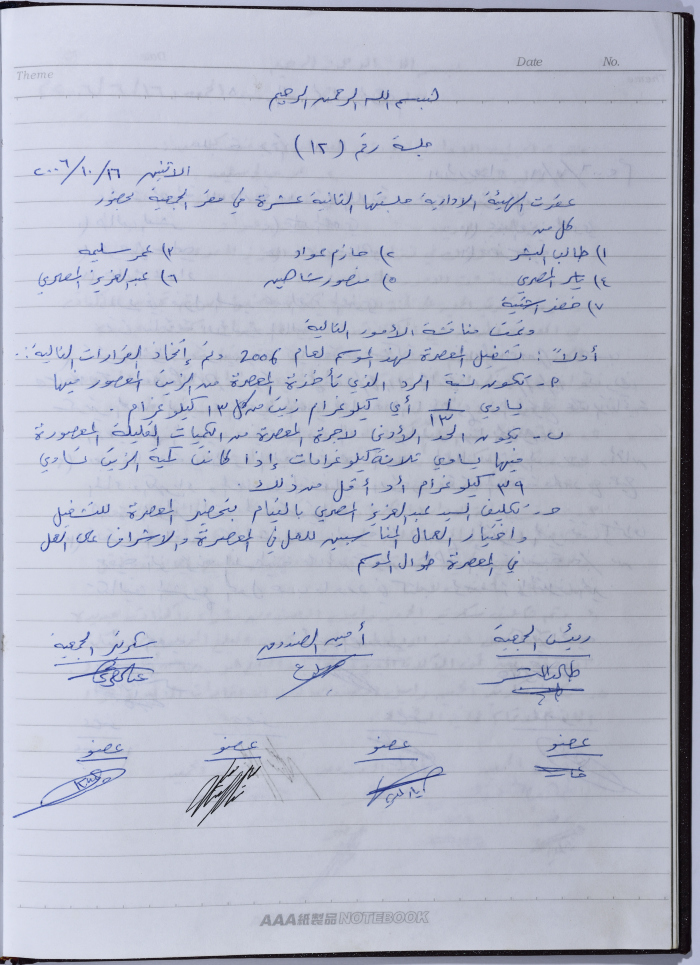 Theme Date No.
بسم الله الرحمن الرحيم
جلسة رقم (١٢)
الاثنين ٢٠٠٦/١٠/١٦
عقدت الهيئة الادارية جلستها الثانية عشرة في مقر الجمعية بحضور
كل من
١) طالب البشر ٢) حازم عواد ٣) عمر سليمه
٤) ياسر المصري ٥) منصور شاهين ٦) عبد العزيز المصري
٧) خضر
وتمت مناقشة الأمور التالية
أولاً: تشغيل المعصرة لهذ الموسم لعام 2006 وتم إتخاذ القرارات التالية:
٢- تكون نسبة الرد الذي تأخذة المعصرة من الزيت المعصور فيها
يساوي ١/١٣ أي كيلو غرام زيت من كل ١٣ كيلو غرام.
ب- يكون الحد الأدنى لاجرة المعصرة من الكميات القليلة المعصورة
فيها يساوي ثلاثة كيلو غرامات إذا كانت كمية الزيت تساوي
٣٩ كيلو غرام أو أقل من ذلك.
ج- تكليف السيد عبد العزيز المصري بالقيام بتحضير المعصرة للتشغيل
واختيار العمال المناسبين للعمل في المعصرة والاشراف على العمل
في المعصرة طوال الموسم
رئيس الجمعية أمين الصندوق سكرتير الجمعية
طالب البشر
عضو عضو عضو عضو
AAA紙製品NOTEBOOK